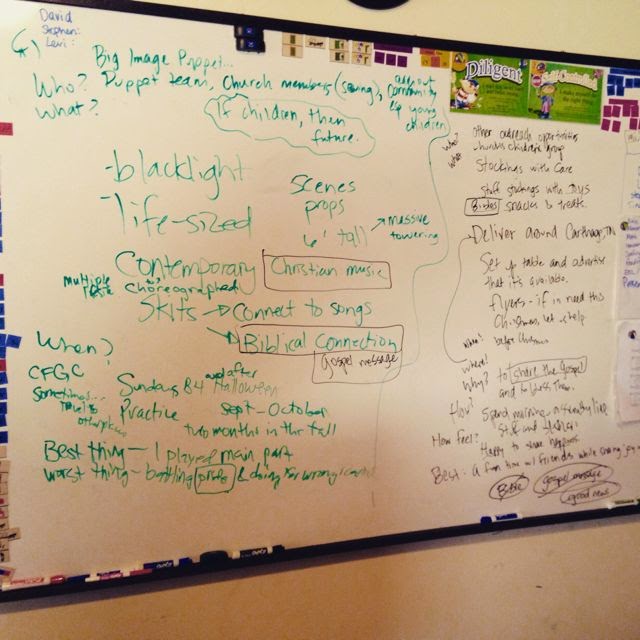 David
Stephen:
Levi:
Big Image Puppet...
Who? Puppet team, Church members (sewing),
community
children
What?
If children, then
future.
-blacklight
-life-sized
scenes
props
6' tall → massive
towering
Contemporary Christian music
multiple
choreographed
Skits → Connect to songs
Biblical Connection
Gospel message
When?
CFGC
sometimes...
Sundays B4 and after
Halloween
Practice
Sept - October
two months in the fall
Best thing - I played main part
worst thing - battling pride & doing for wrong
Diligent
Self-Controlled
Who?
What?
other outreach opportunities
children's group
Stockings with Care
Stuff stockings with toys
Bibles snacks & treats.
Deliver around Carthage, TN
Set up table and advertise
that it's available.
flyers - if in need this
Christmas, let us help
When? before Christmas
Where?
Why? to share the Gospel
and to bless them.
How?
How feel?
Happy to share
Best: A fun time w/ friends while sharing
Bible
gospel message
good news